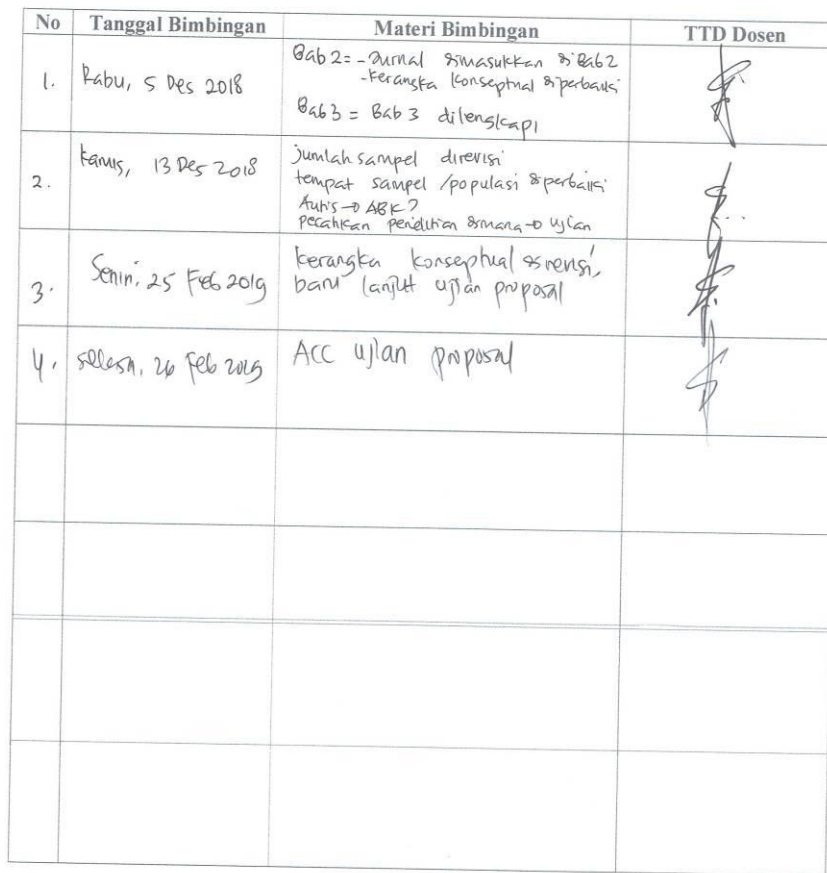 No Tanggal Bimbingan Materi Bimbingan TTD Dosen
1. Rabu, 5 Des 2018
Bab 2 = - Jurnal dimasukkan di Bab 2
- Kerangka konseptual diperbaiki
Bab 3 = Bab 3 dilengkapi
2. Kamis, 13 Des 2018
jumlah sampel direvisi
tempat sampel / populasi diperbaiki
Autis → ABK ?
penelitian dimana → ujian
3. Senin, 25 Feb 2019
kerangka konseptual direvisi,
baru lanjut ujian proposal
4. Selasa, 26 Feb 2019
ACC ujian proposal